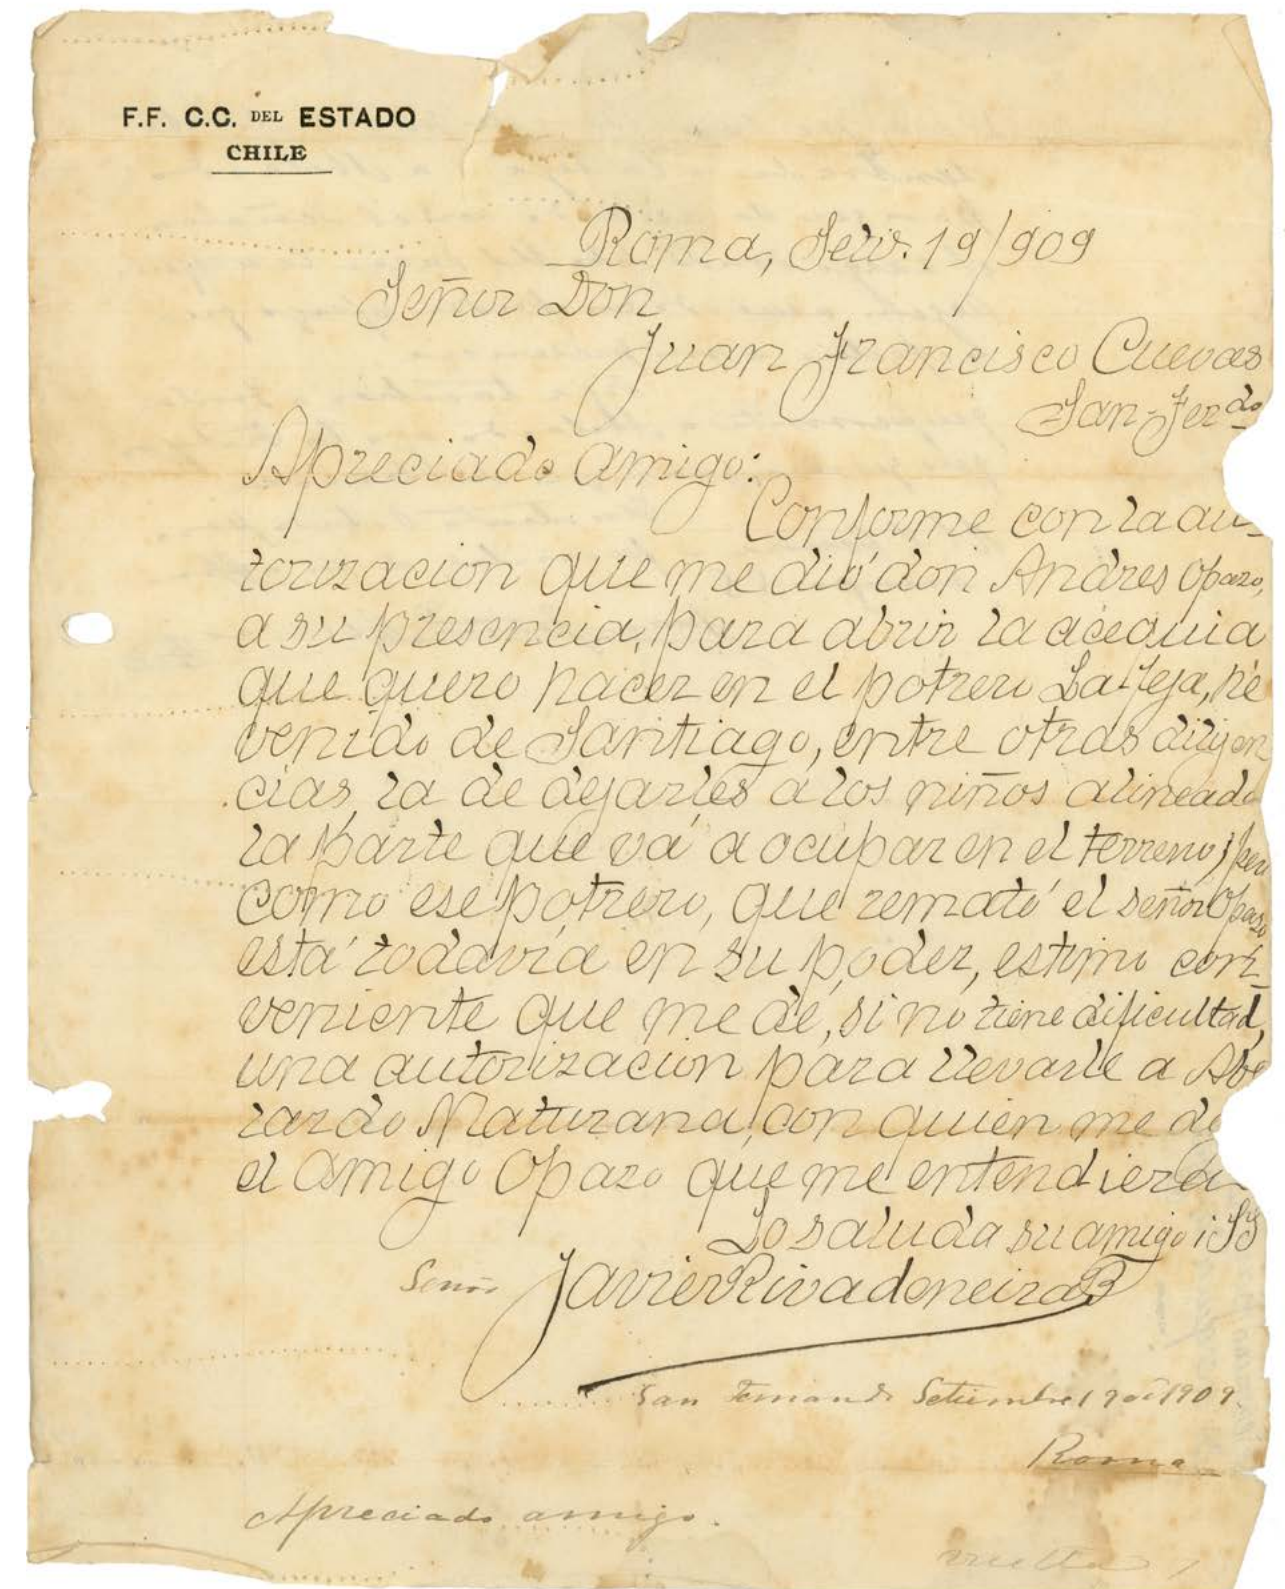 F.F. C.C. DEL ESTADO
CHILE
Roma, Setb. 19/909
Señor Don
Juan Francisco Cuevas
San-Ferdo
Apreciado amigo:
Conforme con la au-
torizacion que me dió don Andres Opazo,
a su presencia, para abrir la acequia
que quero hacer en el potrero La-Teja, hé
venido de Santiago, entre otras dilijen
cias, la de dejarles a los niños alineado
la parte que vá a ocupar en el terreno; pero
como ese potrero, que remató el señor Opazo
está todavía en su poder, estimo con-
veniente que me dé, si no tiene dificultad,
una autorizacion para llevarle a Abe
lardo Maturana, con quien me di
el amigo Opazo que me entendiera
Lo saluda su amigo i SS
Javier Rivadeneira B
Señor
San Fernando Setiembre 19 de 1909.
Roma
Apreciado amigo.
vuelta